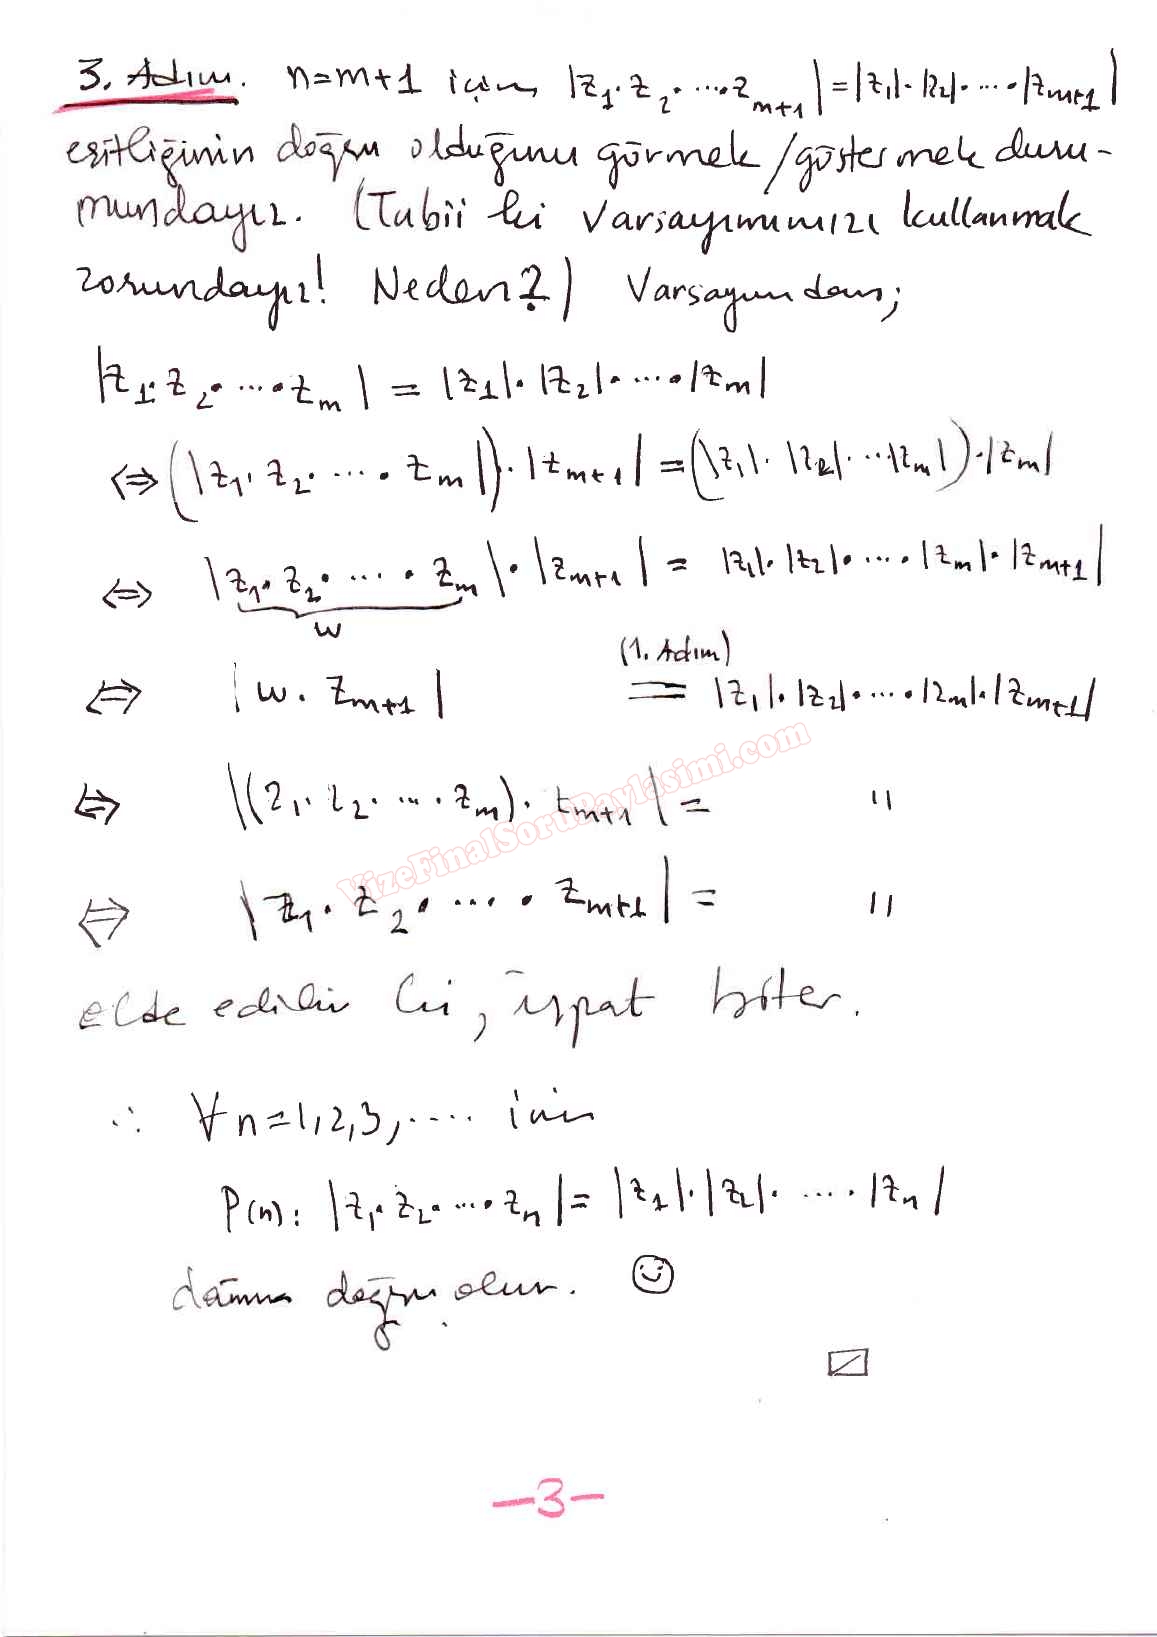 3. Adım. n=m+1 için, |z₁·z₂·...·z_{m+1}|=|z₁|·|z₂|·...·|z_{m+1}|
eşitliğinin doğru olduğunu görmek/göstermek duru-
mundayız. (Tabii ki varsayımımızı kullanmak
zorundayız! Neden?) Varsayımdan;
|z₁·z₂·...·z_m| = |z₁|·|z₂|·...·|z_m|
⇔ (|z₁·z₂·...·z_m|)·|z_{m+1}| = (|z₁|·|z₂|·...|z_m|)·|z_m|
⇔ |z₁·z₂·...·z_m|·|z_{m+1}| = |z₁|·|z₂|·...·|z_m|·|z_{m+1}|
w
(1. Adım)
⇔ |w·z_{m+1}| = |z₁|·|z₂|·...·|z_m|·|z_{m+1}|
⇔ |(z₁·z₂·...·z_m)·z_{m+1}| = "
⇔ |z₁·z₂·...·z_{m+1}| = "
VizeFinalSoruPaylasimi.com
elde edilir ki, ispat biter.
∴ ∀n=1,2,3,.... için
P(n): |z₁·z₂·...·z_n| = |z₁|·|z₂|·....·|z_n|
daima doğru olur. ☺
-3-